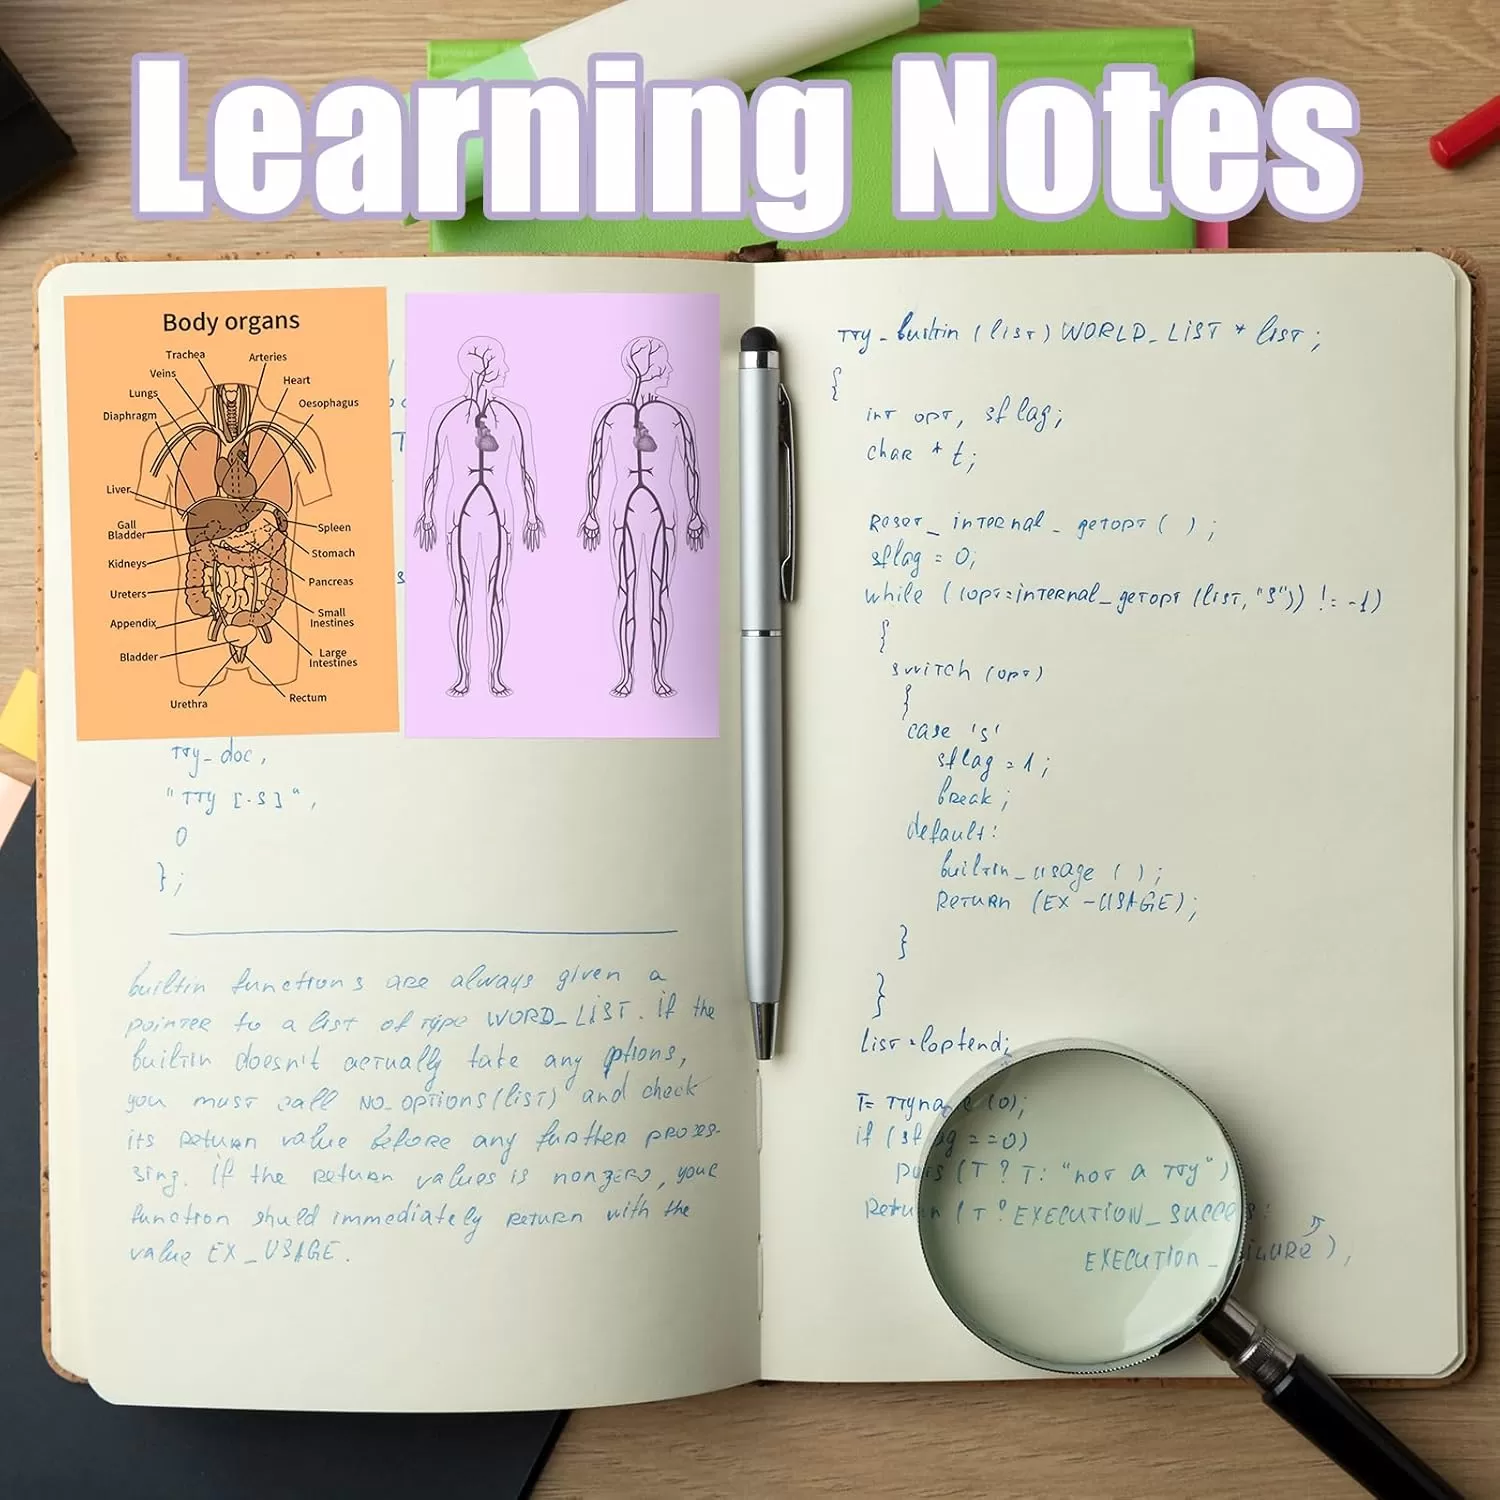 Learning Notes
Body organs
Trachea
Arteries
Veins
Heart
Lungs
Oesophagus
Diaphragm
Liver
Gall
Bladder
Spleen
Stomach
Kidneys
Pancreas
Ureters
Small
Inestines
Appendix
Large
Intestines
Bladder
Urethra
Rectum
tty_doc,
"tty [-s]",
0
};
builtin functions are always given a
pointer to a list of type WORD_LIST. if the
builtin doesn't actually take any options,
you must call no_options(list) and check
its return value before any further proces-
sing. if the return values is nonzero, your
function shuld immediately return with the
value EX_USAGE.
tty_builtin (list) WORLD_LIST * list;
{
int opt, sflag;
char * t;
Reset_internal_getopt ( );
sflag = 0;
while ((opt=internal_getopt (list, "s")) != -1)
{
switch (opt)
{
case 's'
sflag = 1;
break;
default:
builtin_usage ( );
Return (EX-USAGE);
}
}
list = loptend;
T= ttyname (0);
if (sflag == 0)
puts (T ? T: "not a tty")
Return (T ? EXECUTION_SUCCESS:
EXECUTION_FAILURE),